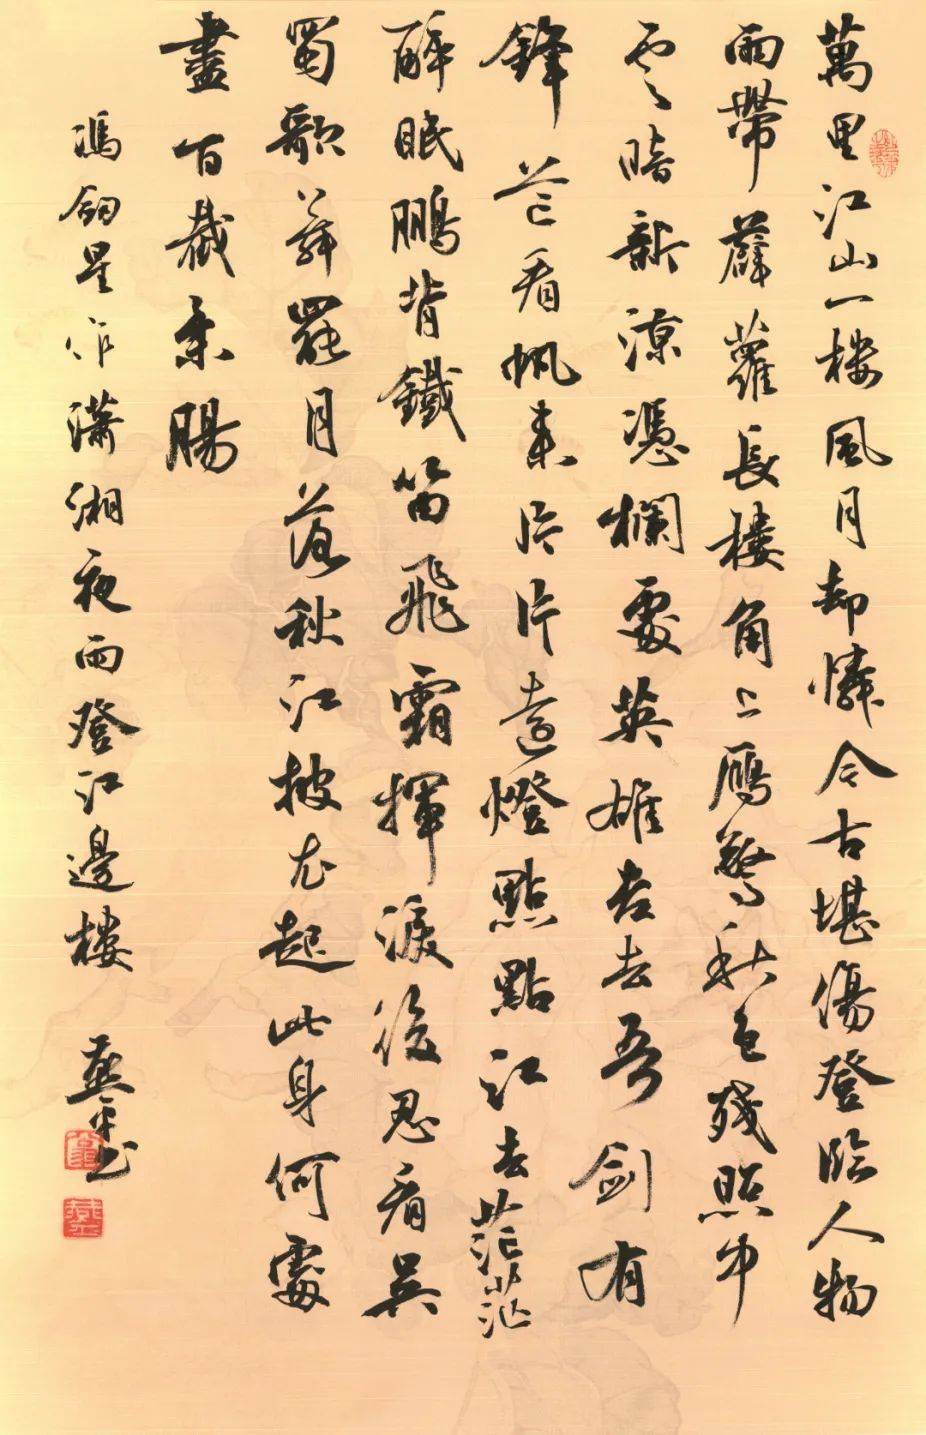 萬里江山一楼風月却憐今古堪傷登臨人物
雨帶薜蘿長樓角上雁驚秋色殘照中
雲暗新涼憑欄處英雄去去吾劍有
鋒芒看帆來片片遠燈點點江去茫茫
醉眠鵬背鐵笛飛霜揮淚後忍看吳
蜀歌舞罷月落秋江披衣起此身何處
盡百截柔腸
馮鈞星作瀟湘夜雨登江邊樓
燕平書